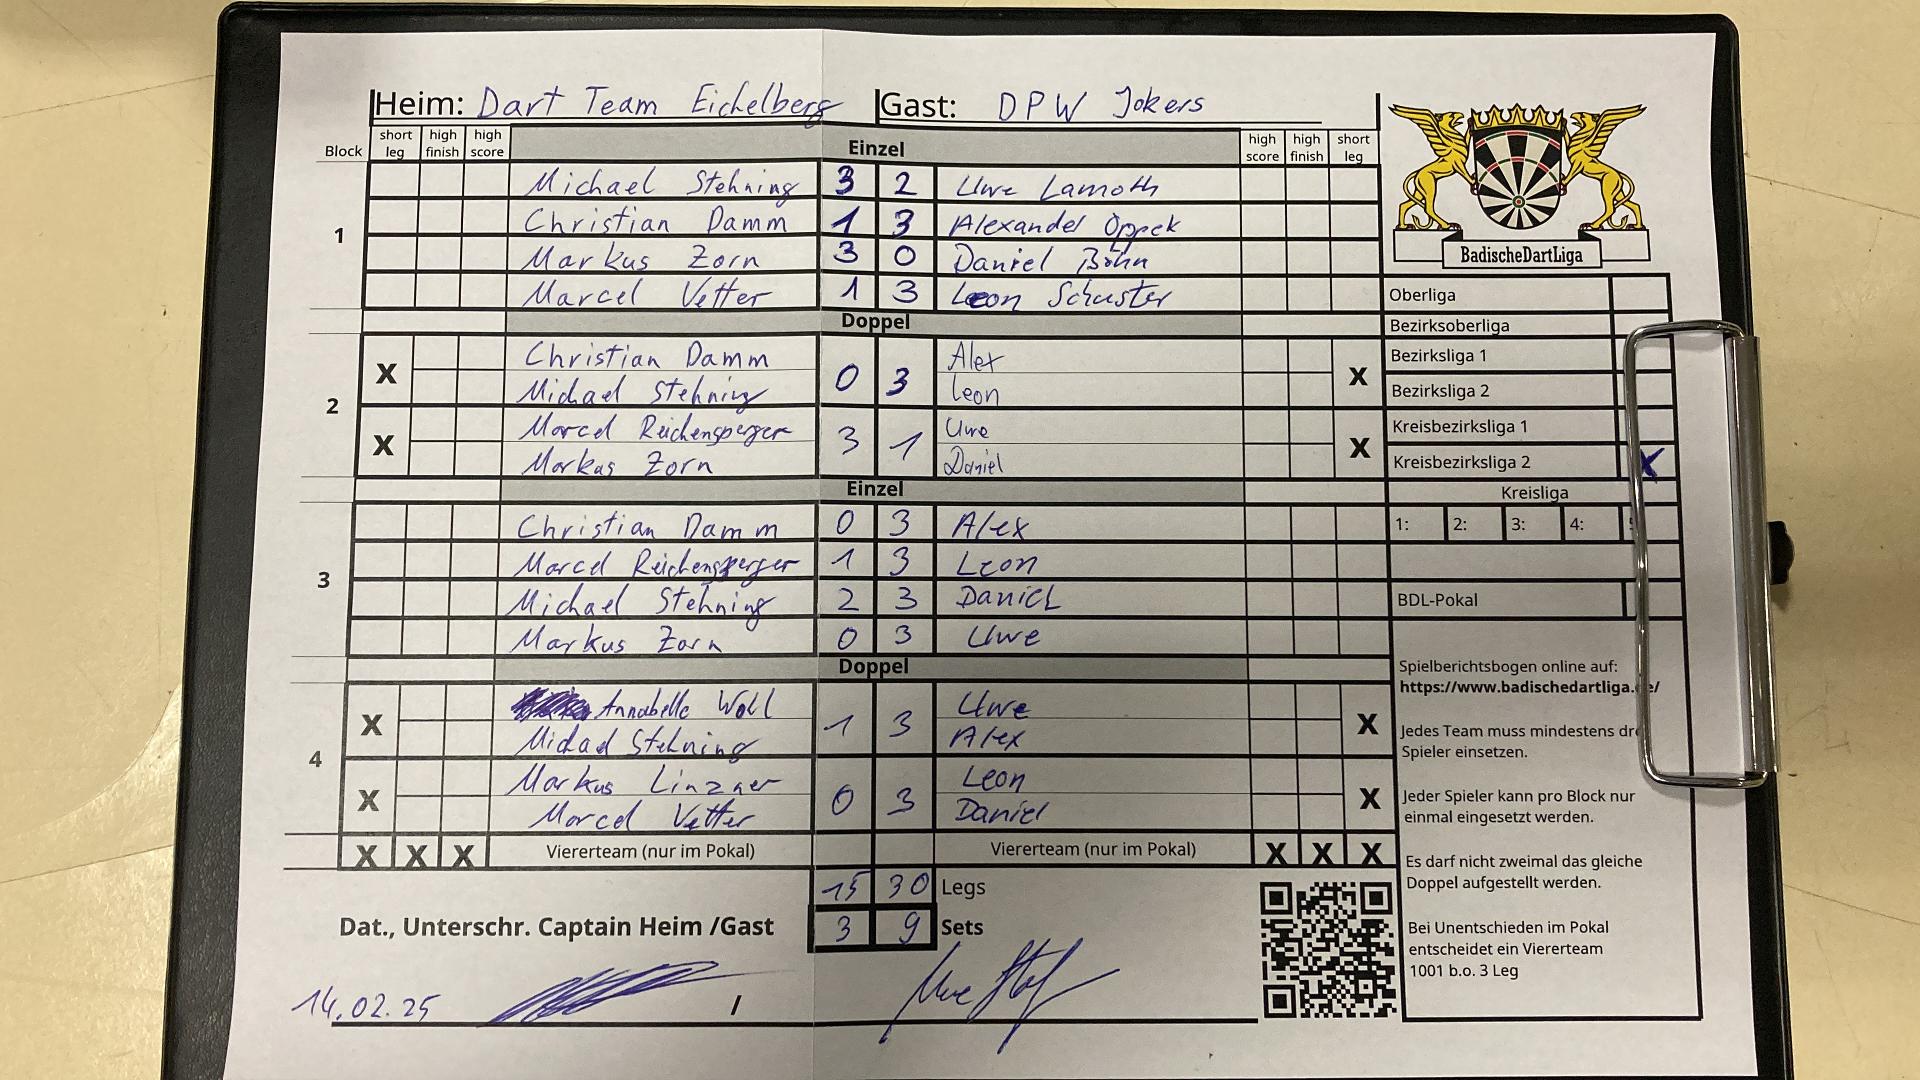 Heim: Dart Team Eichelberg Gast: DPW Jokers
Block short leg high finish high score Einzel high score high finish short leg
1
Michael Stehning 3 2 Uwe Lamoth
Christian Damm 1 3 Alexander Oppek
Markus Zorn 3 0 Daniel Böhn
Marcel Vetter 1 3 Leon Schuster
Doppel
2
X Christian Damm 0 3 Alex X
Michael Stehning Leon
X Marcel Reichensperger 3 1 Uwe X
Markus Zorn Daniel
Einzel
3
Christian Damm 0 3 Alex
Marcel Reichensperger 1 3 Leon
Michael Stehning 2 3 Daniel
Markus Zorn 0 3 Uwe
Doppel
4
X Annabelle Woll 1 3 Uwe X
Michael Stehning Alex
X Markus Linzner 0 3 Leon X
Marcel Vetter Daniel
X X X Viererteam (nur im Pokal) Viererteam (nur im Pokal) X X X
15 30 Legs
Dat., Unterschr. Captain Heim /Gast 3 9 Sets
14.02.25 / Uwe
BadischeDartLiga
Oberliga
Bezirksoberliga
Bezirksliga 1
Bezirksliga 2
Kreisbezirksliga 1
Kreisbezirksliga 2 X
Kreisliga
1: 2: 3: 4:
BDL-Pokal
Spielberichtsbogen online auf:
https://www.badischedartliga.de/
Jedes Team muss mindestens drei
Spieler einsetzen.
Jeder Spieler kann pro Block nur
einmal eingesetzt werden.
Es darf nicht zweimal das gleiche
Doppel aufgestellt werden.
Bei Unentschieden im Pokal
entscheidet ein Viererteam
1001 b.o. 3 Leg